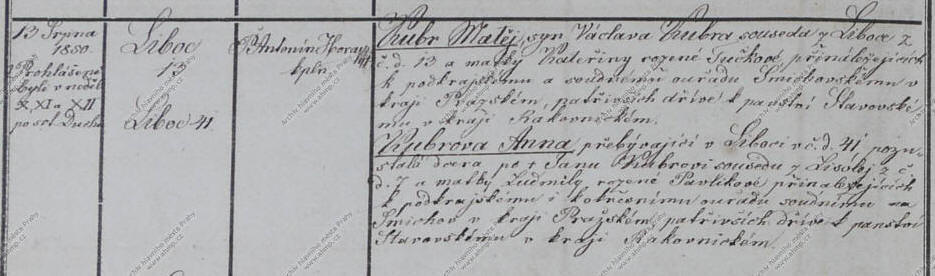 13 Srpna
1850.
Prohlášené
byli v neděli
X, XI a XII
po sct. Duchu
Liboc
13
Liboc 41.
P. Antonín Horay
kpln
Kubr Matěj, syn Václava Kubra souseda z Liboce z
č. d. 13 a matky Kateřiny rozené Tučkové, přináležejících
k podkrajskému a soudnímu ouřadu Smíchovskému v
kraji Pražském, patřivších dříve k panství Stavovské-
mu v kraji Rakovnickém.
Kubrova Anna, přebývající v Liboci v č. d. 41 pozu-
stalá dcera po † Janu Kubrovi sousedu z Lisolej z č.
d. 7 a matky Ludmily rozené Pavlíkové přináležejících
k podkrajskému i ouřadu soudnímu na
Smíchov v kraji Pražském, patřivších dříve k panství
Stavovskému v kraji Rakovnickém.
Archiv hlavního města Prahy
www.ahmp.cz